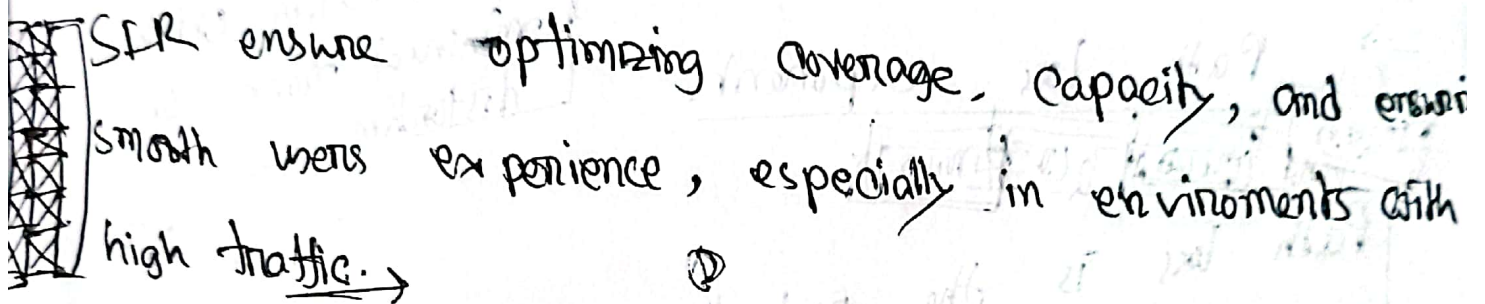 SIR ensure optimizing coverage, capacity, and ensuri
smooth users experience, especially in enviroments with
high traffic. →
①